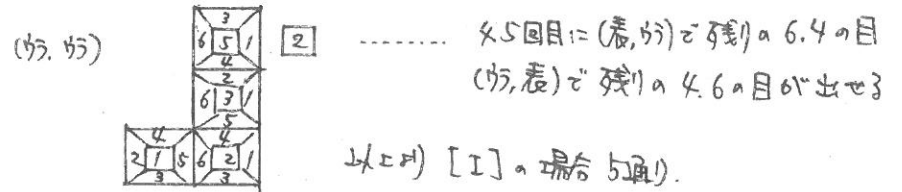 (ウラ, ウラ)
3
6 5 1
4
2
6 3 1
5
4 4
2 1 5 6 2 1
3 3
2
‥‥‥‥ 4.5回目に(表,ウラ)で残りの6.4の目
(ウラ,表)で残りの4.6の目が出せる
以上より [I]の場合 5通り.